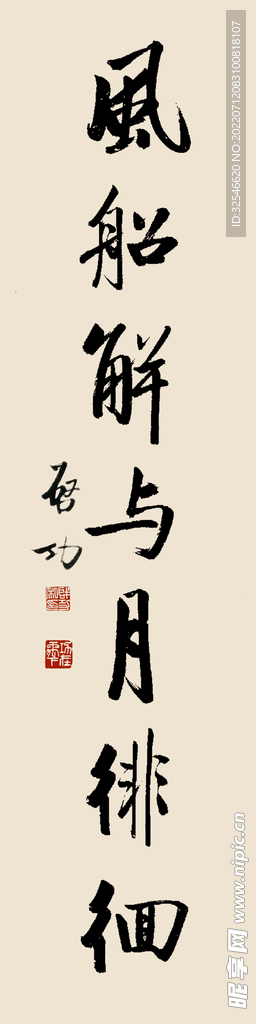 風船解与月徘徊
啓功
ID:32546620 NO:20220712083100818107
昵享网 www.nipic.cn